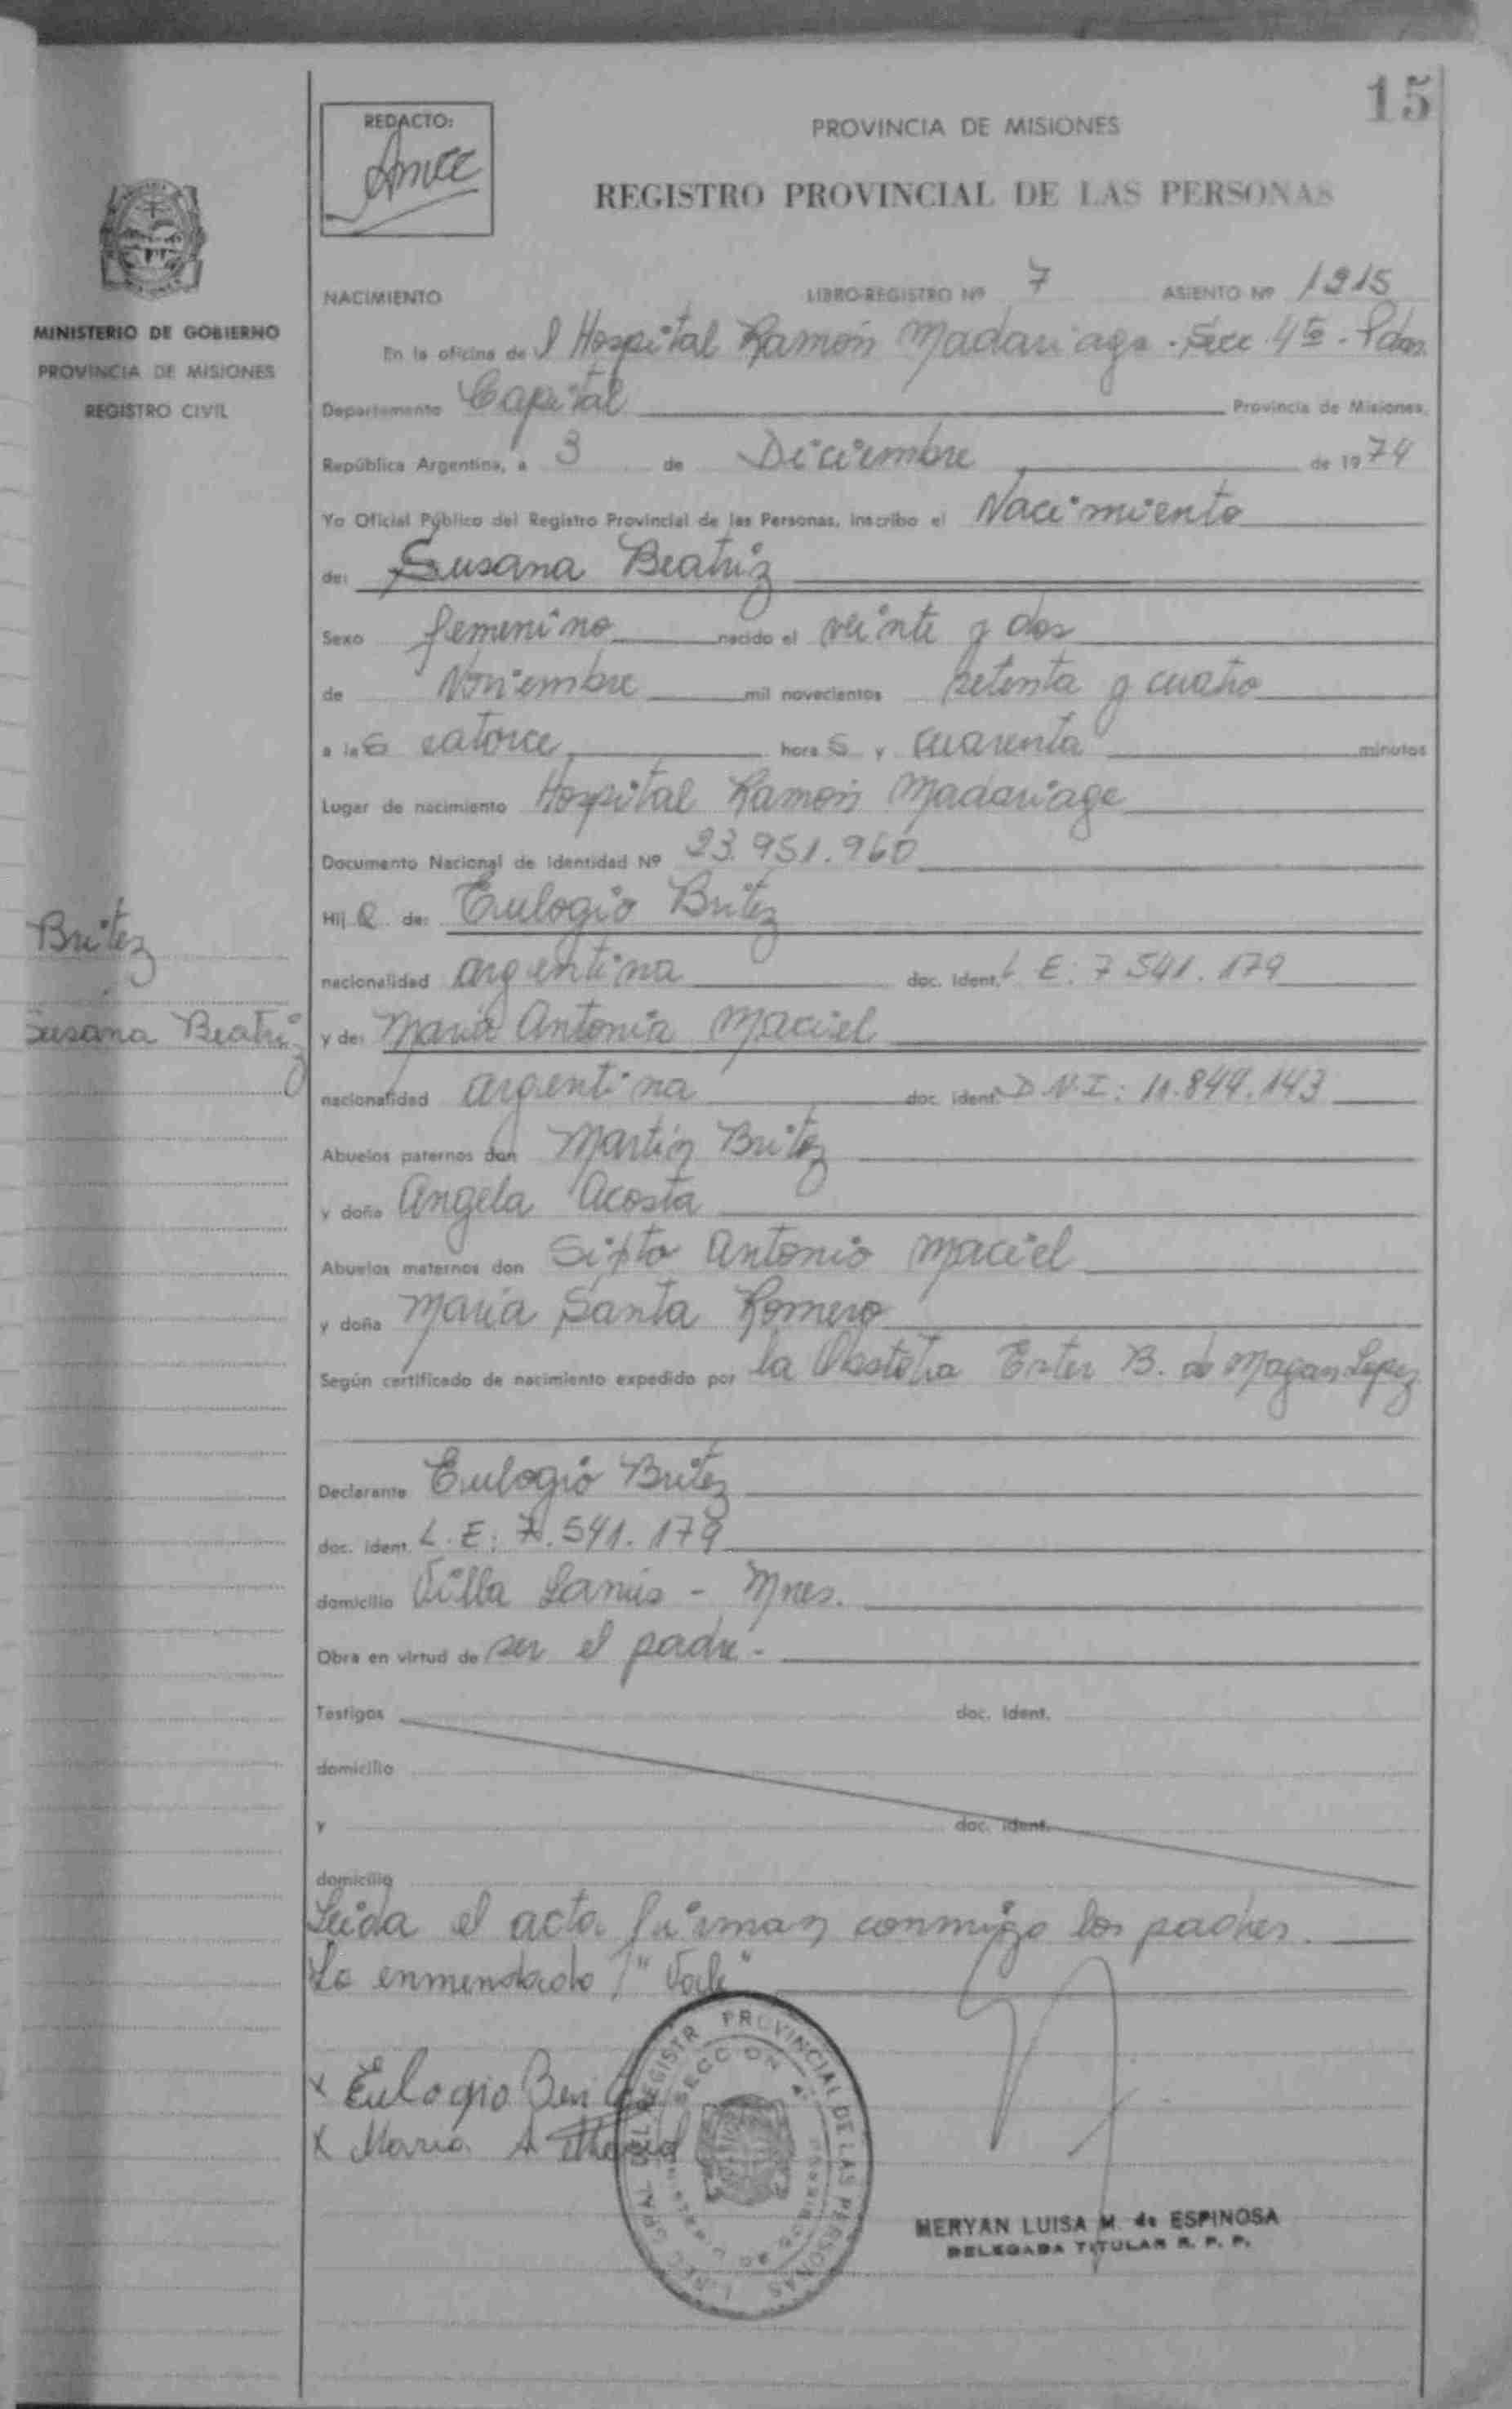 15
REDACTO:
PROVINCIA DE MISIONES
REGISTRO PROVINCIAL DE LAS PERSONAS
MINISTERIO DE GOBIERNO
PROVINCIA DE MISIONES
REGISTRO CIVIL
NACIMIENTO LIBRO-REGISTRO Nº 7 ASIENTO Nº 1215
En la oficina de l Hospital Ramón Madariaga - Secc 4ta - Pdas.
Departamento Capital Provincia de Misiones,
República Argentina, a 3 de Diciembre de 1974
Yo Oficial Público del Registro Provincial de las Personas, inscribo el Nacimiento
de: Susana Beatriz
Sexo femenino nacido el veinte y dos
de Noviembre mil novecientos setenta y cuatro
a las catorce horas y cuarenta minutos
Lugar de nacimiento Hospital Ramón Madariaga
Documento Nacional de Identidad Nº 23.951.960
Hija de: Eulogio Britez
Britez
nacionalidad argentina doc. ident. L E: 7.541.179
Susana Beatriz
y de: María Antonia Maciel
nacionalidad argentina doc. ident. D.N.I: 11.844.143
Abuelos paternos don Martín Britez
y doña Angela Acosta
Abuelos maternos don Sixto Antonio Maciel
y doña María Santa Romero
Según certificado de nacimiento expedido por la Obstetra Ester B. de Magan Lopez
Declarante Eulogio Britez
doc. ident. L.E: 7.541.179
domicilio Villa Lanús - Mnes.
Obra en virtud de ser el padre -
Testigos doc. ident.
domicilio
y doc. ident.
domicilio
Leída el acta firman conmigo los padres.
Lo enmendado 7 "Vale"
x Eulogio
x Maria A Maciel
PROVINCIAL DE LAS PERSONAS
SECCION 4ª
MERYAN LUISA M. de ESPINOSA
DELEGADA TITULAR R. P. P.